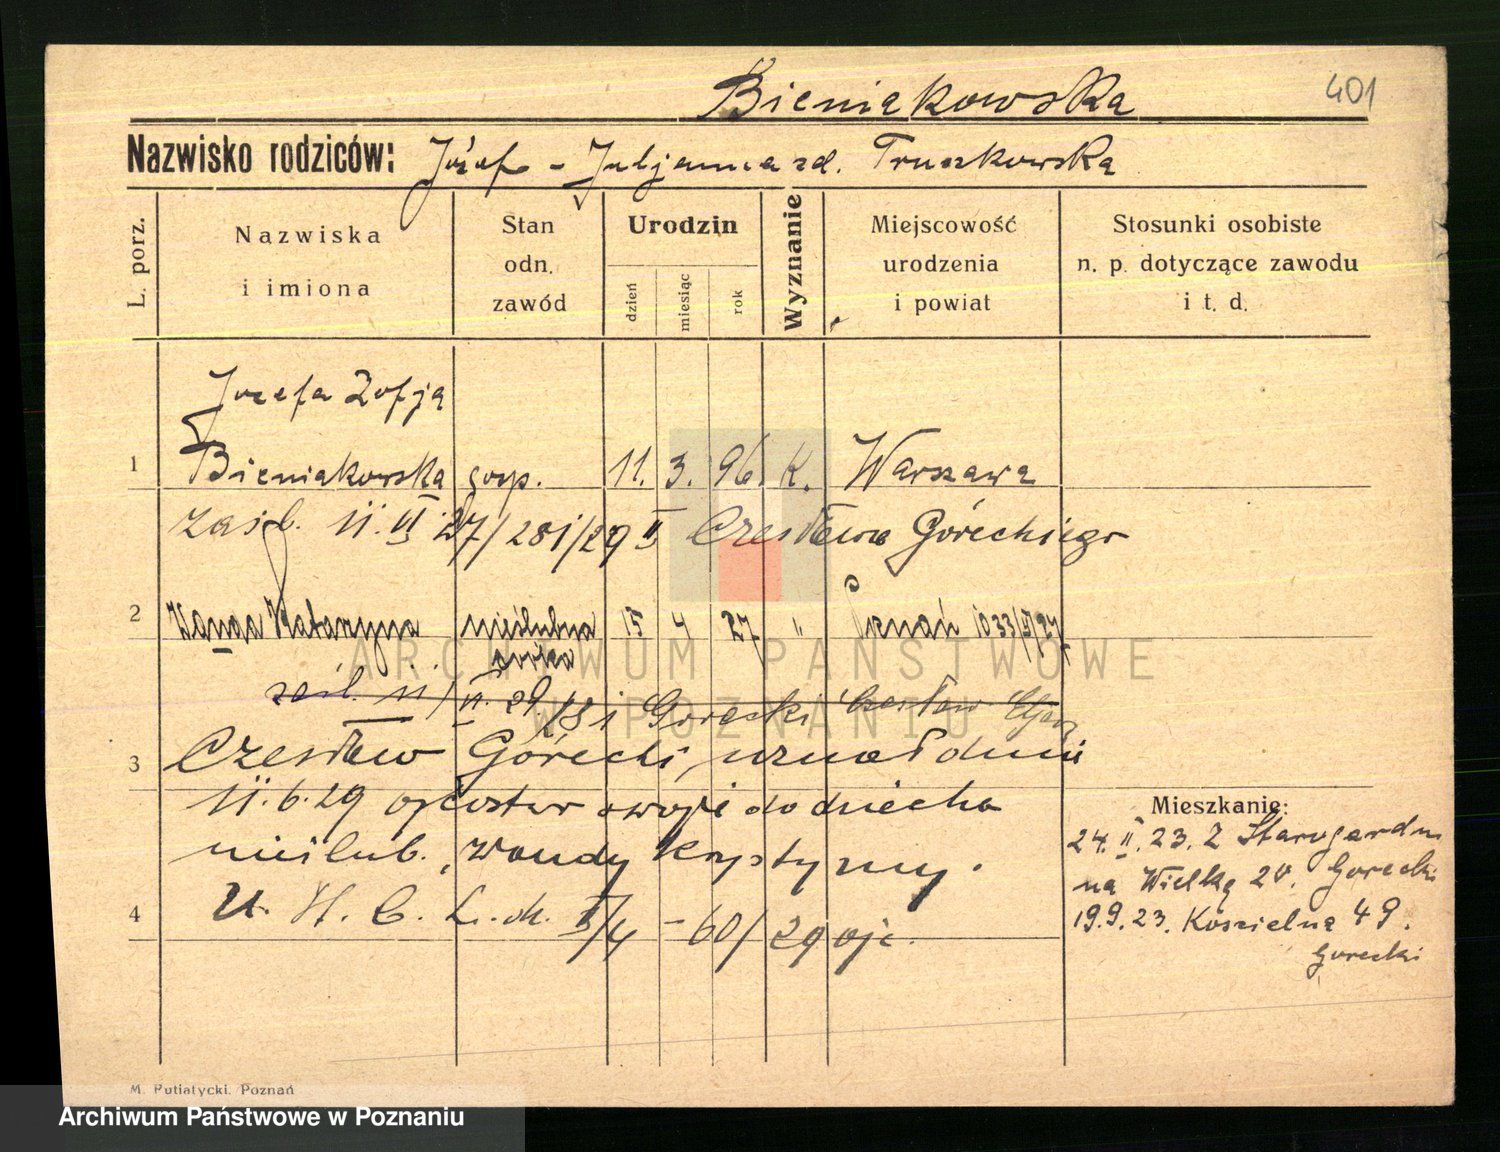 Bieniakowska
401
Nazwisko rodziców: Józef - Juljanna zd. Truszkowska
L. porz.
Nazwiska i imiona
Stan odn. zawód
Urodzin
dzień
miesiąc
rok
Wyznanie
Miejscowość urodzenia i powiat
Stosunki osobiste n. p. dotyczące zawodu i t. d.
Józefa Zofja
1 Bieniakowska gosp. 11. 3. 96. K. Warszawa
zaśl. 11. VI. 27/281/29 II Czesława Góreckiego
2 Wanda Katarzyna nieślubna 15 4 27 " Poznań 1033/II/27
córka
zaśl. 11/VI. 29/81 Gorecki Czesław
3 Czesław Górecki, uznał dnia
11.6.29 ojcostwo swoje do dziecka
nieślub. Wandy Krystyny.
4 U. St. C. L. dz. I/4 -60/29 ojc.
Mieszkanie:
24. II. 23. Z Starogardu
na Wielką 20. Gorecki
19.9.23. Kościelna 49.
Gorecki
M. Putiatycki. Poznań
ARCHIWUM PAŃSTWOWE
W POZNANIU
Archiwum Państwowe w Poznaniu